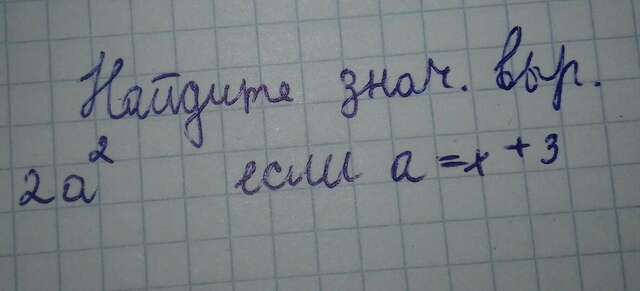 Найдите знач. выр.
2a² если a = x + 3